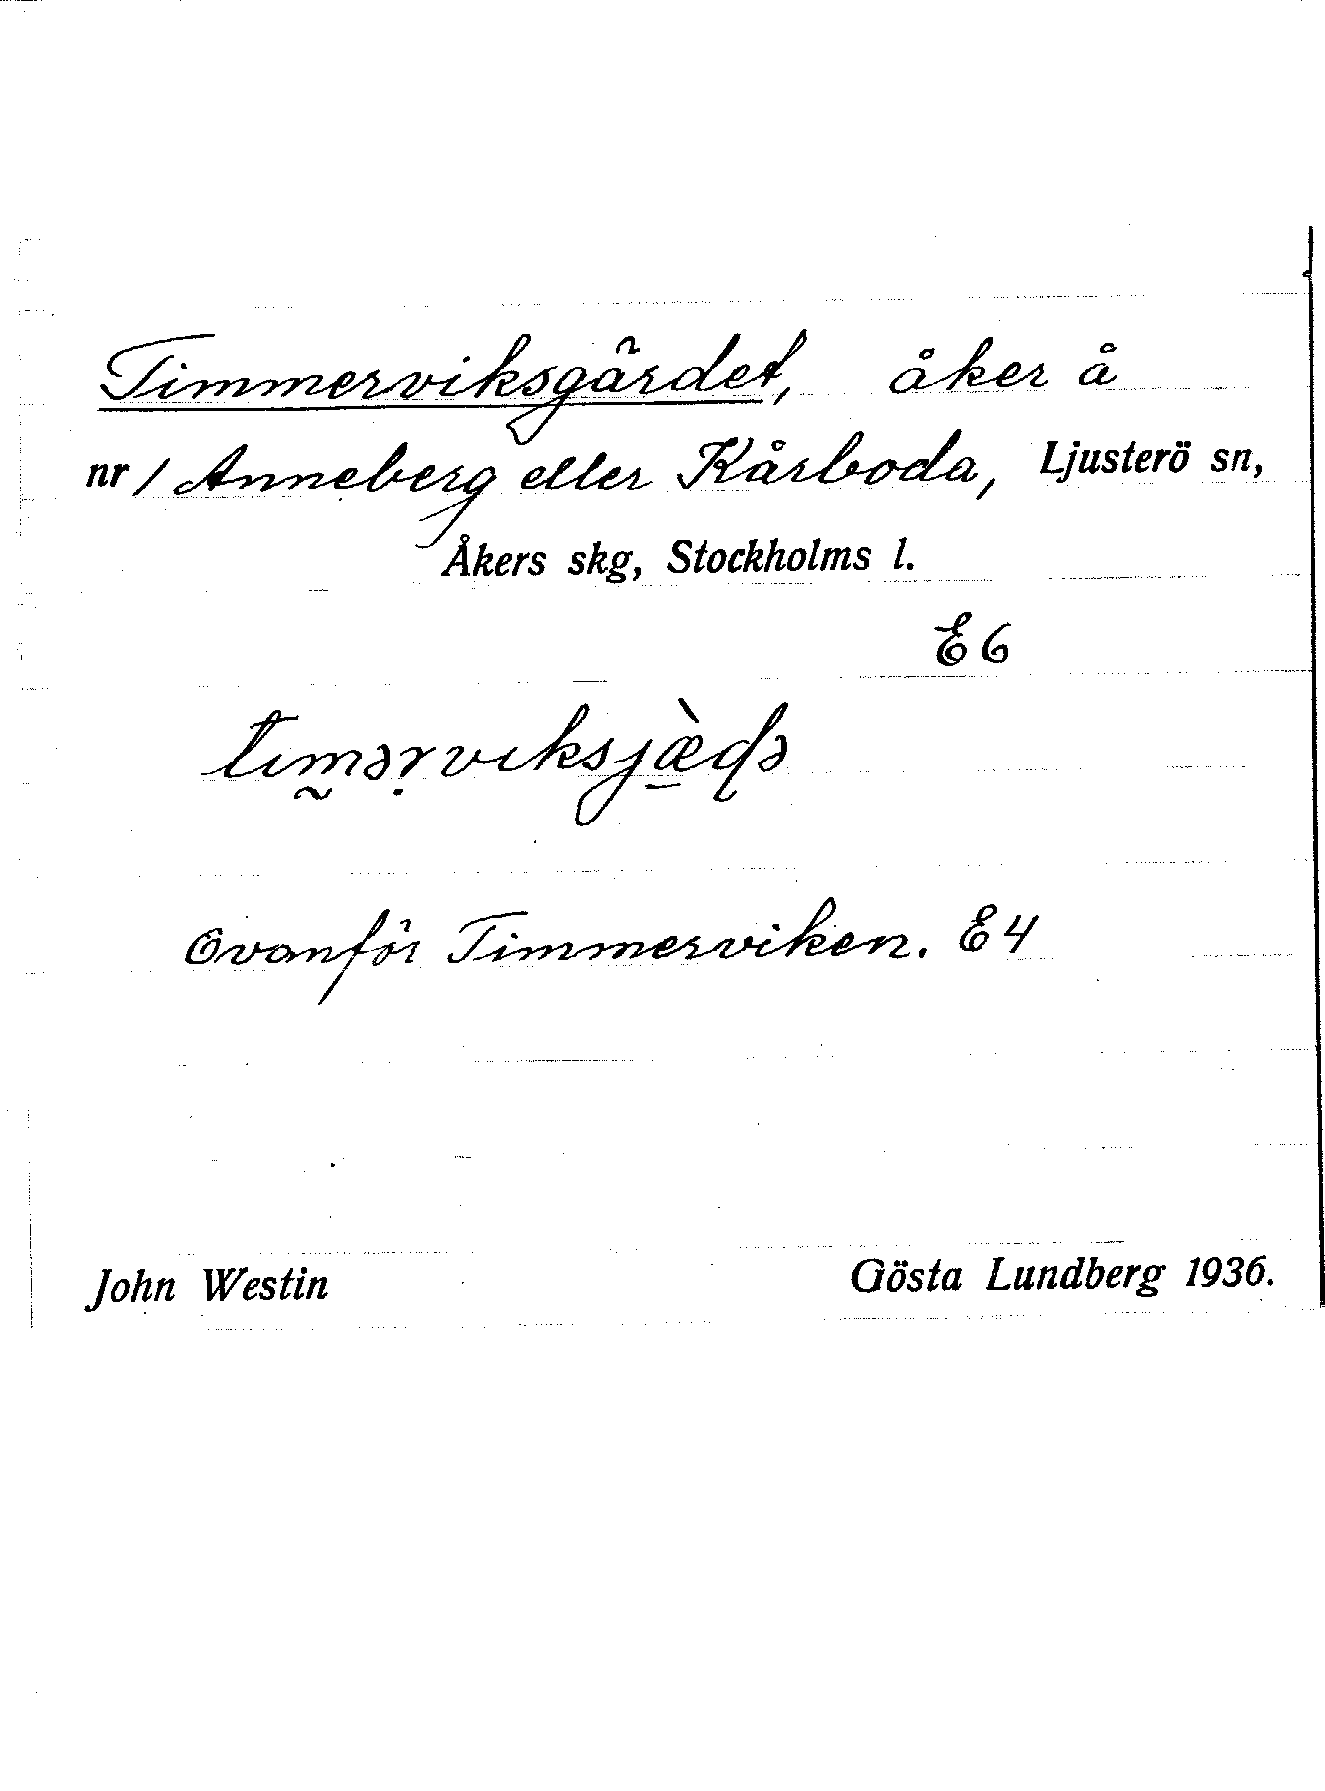 Timmerviksgärdet, åker å
nr 1 Anneberg eller Kårboda, Ljusterö sn,
Åkers skg, Stockholms l.
E 6
Ovanför Timmerviken. E 4
John Westin Gösta Lundberg 1936.